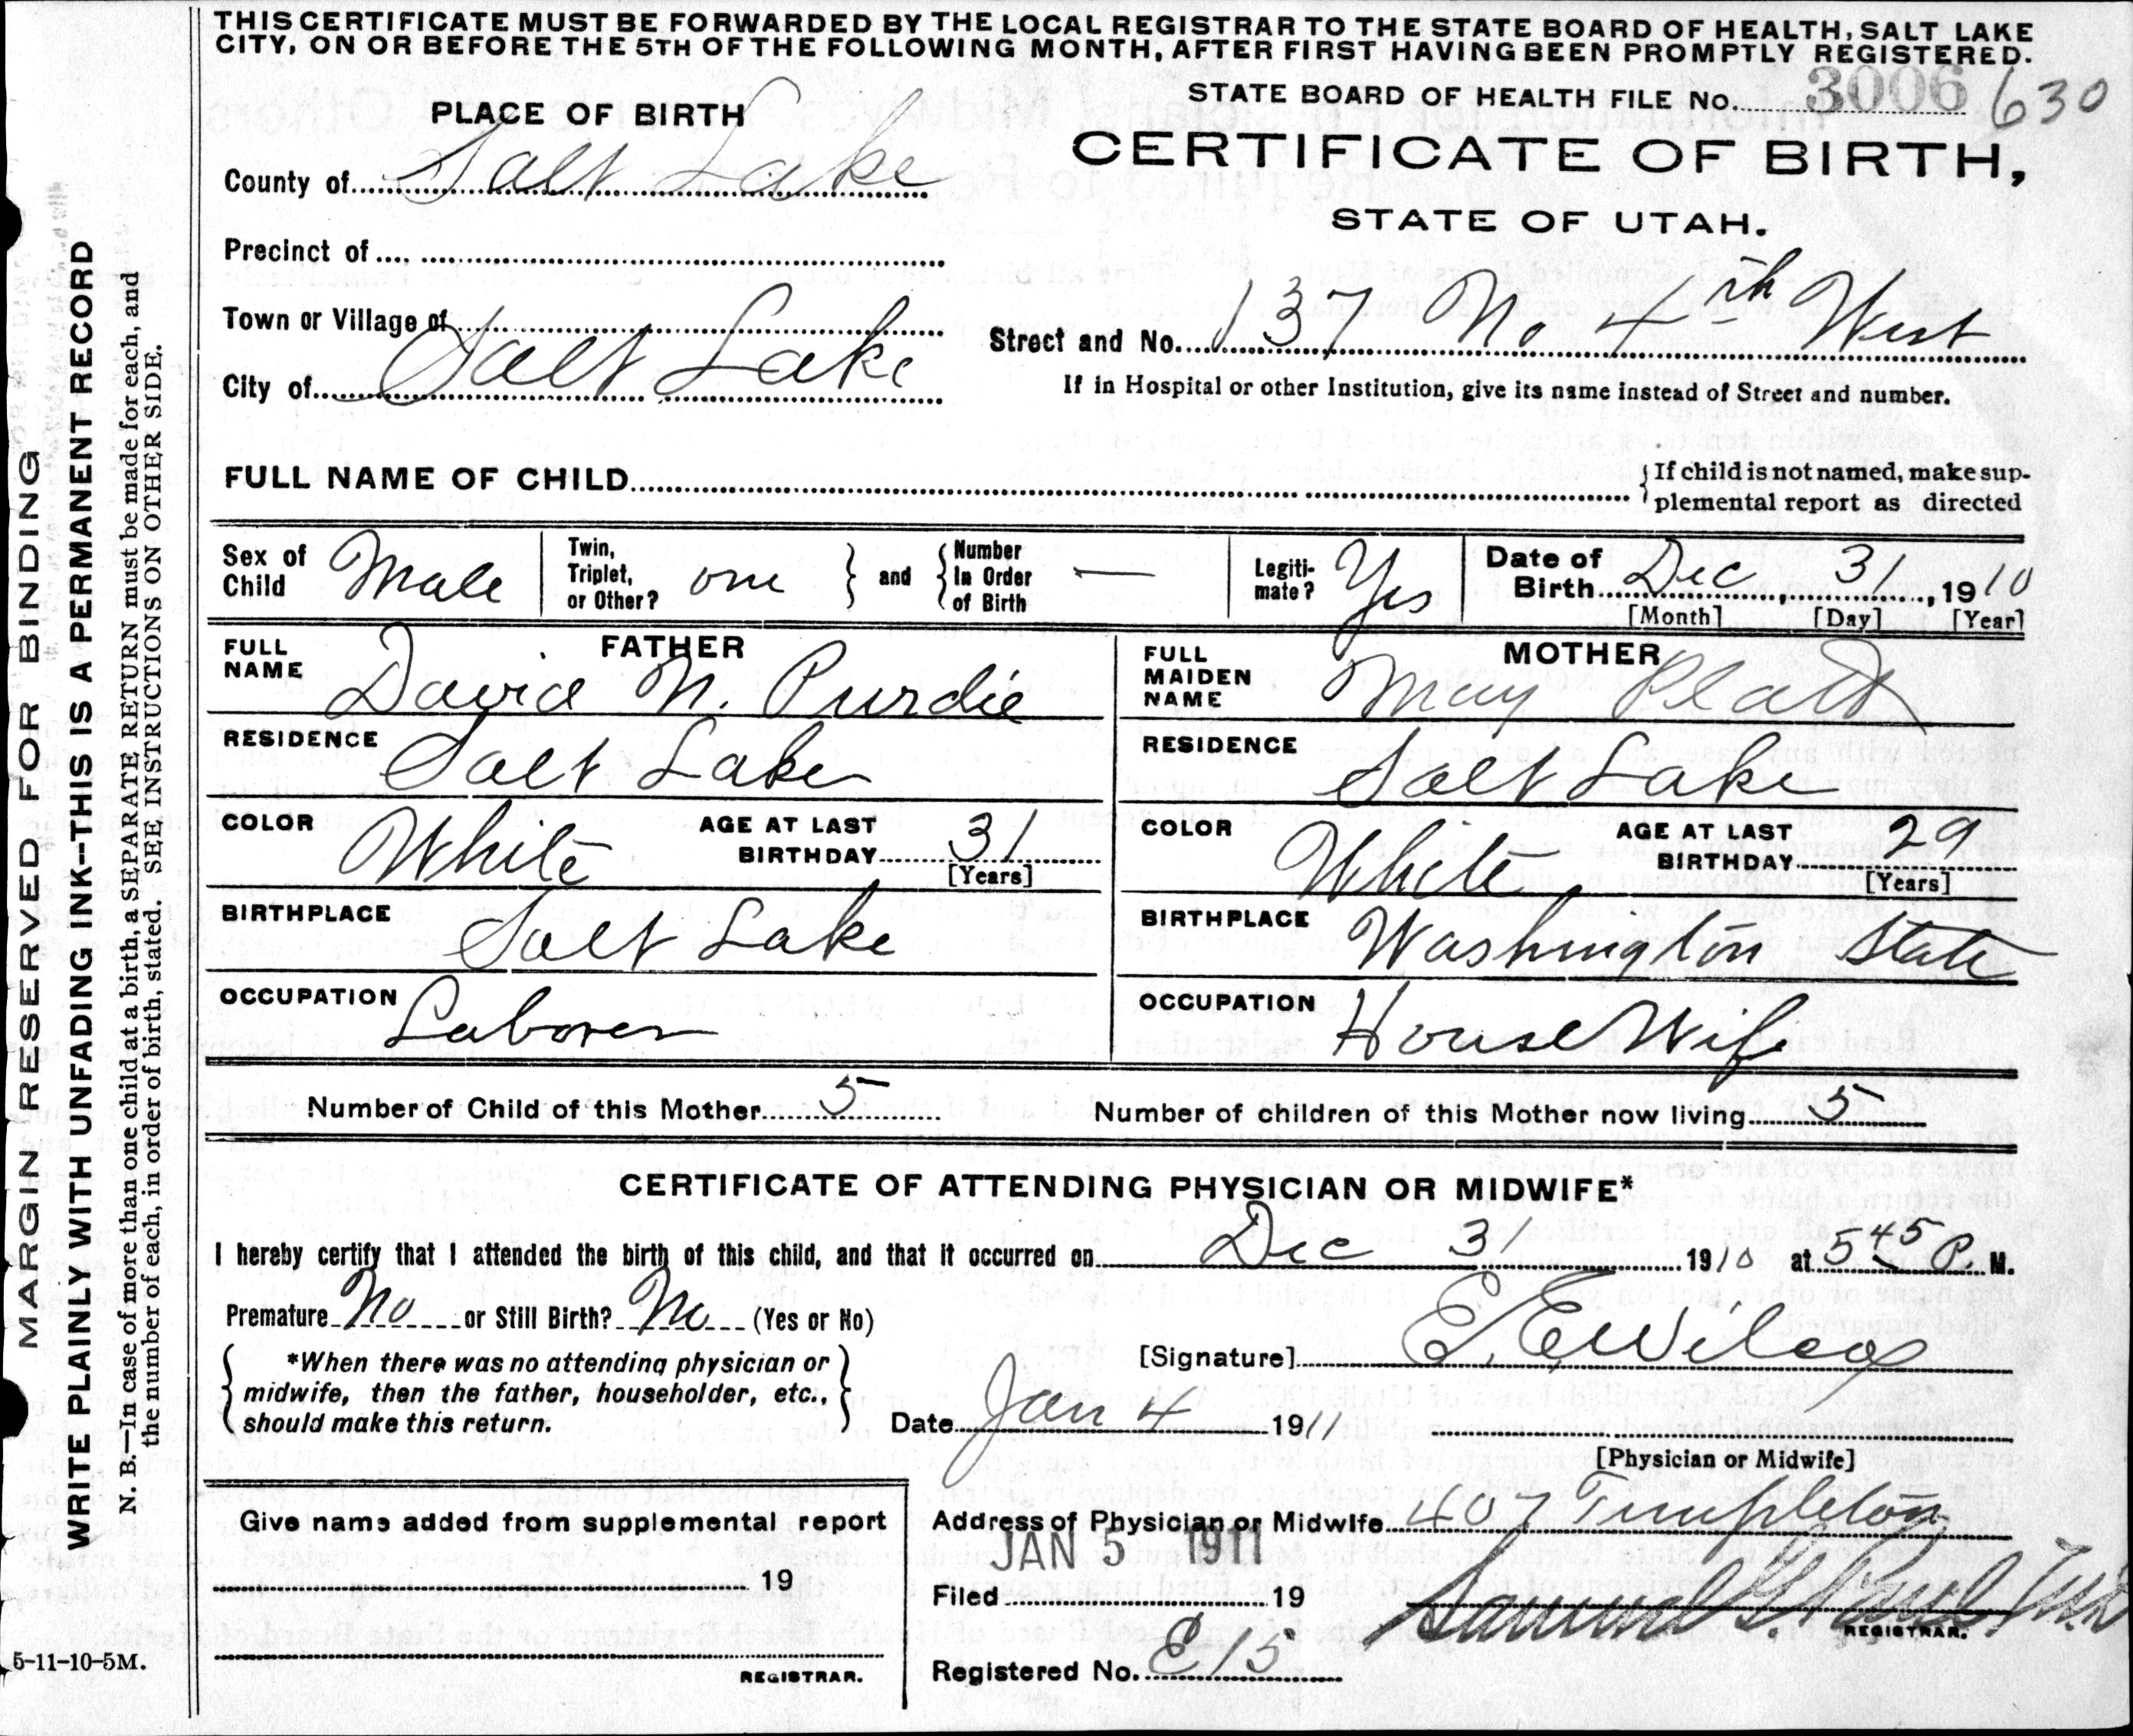 THIS CERTIFICATE MUST BE FORWARDED BY THE LOCAL REGISTRAR TO THE STATE BOARD OF HEALTH, SALT LAKE
CITY, ON OR BEFORE THE 5TH OF THE FOLLOWING MONTH, AFTER FIRST HAVING BEEN PROMPTLY REGISTERED.
STATE BOARD OF HEALTH FILE No. 3006 630
PLACE OF BIRTH
CERTIFICATE OF BIRTH,
County of Salt Lake
STATE OF UTAH.
Precinct of
Town or Village of
Street and No. 137 No 4th West
City of Salt Lake
If in Hospital or other Institution, give its name instead of Street and number.
FULL NAME OF CHILD
If child is not named, make sup-
plemental report as directed
Sex of Child Male
Twin, Triplet, or Other? one and Number In Order of Birth —
Legiti-mate? Yes
Date of Birth Dec 31, 1910
[Month] [Day] [Year]
FATHER
FULL NAME David N. Purdie
MOTHER
FULL MAIDEN NAME May Platt
RESIDENCE Salt Lake
RESIDENCE Salt Lake
COLOR White AGE AT LAST BIRTHDAY 31 [Years]
COLOR White AGE AT LAST BIRTHDAY 29 [Years]
BIRTHPLACE Salt Lake
BIRTHPLACE Washington State
OCCUPATION Laborer
OCCUPATION House Wife
Number of Child of this Mother 5
Number of children of this Mother now living 5
CERTIFICATE OF ATTENDING PHYSICIAN OR MIDWIFE*
I hereby certify that I attended the birth of this child, and that it occurred on Dec 31 1910 at 5 45 P. M.
Premature No or Still Birth? No (Yes or No)
*When there was no attending physician or
midwife, then the father, householder, etc.,
should make this return.
[Signature] E. E. Wilcox
Date Jan 4 1911
[Physician or Midwife]
Give name added from supplemental report
19
REGISTRAR.
Address of Physician or Midwife 407 Templeton
JAN 5 1911
Filed 19
Samuel G. Paul
REGISTRAR.
Registered No. E 15
MARGIN RESERVED FOR BINDING
WRITE PLAINLY WITH UNFADING INK--THIS IS A PERMANENT RECORD
N. B.—In case of more than one child at a birth, a SEPARATE RETURN must be made for each, and
the number of each, in order of birth, stated. SEE INSTRUCTIONS ON OTHER SIDE.
5-11-10-5M.